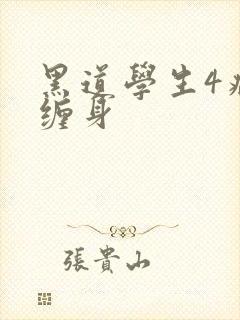 黑道學生4病
缠身
張貴山